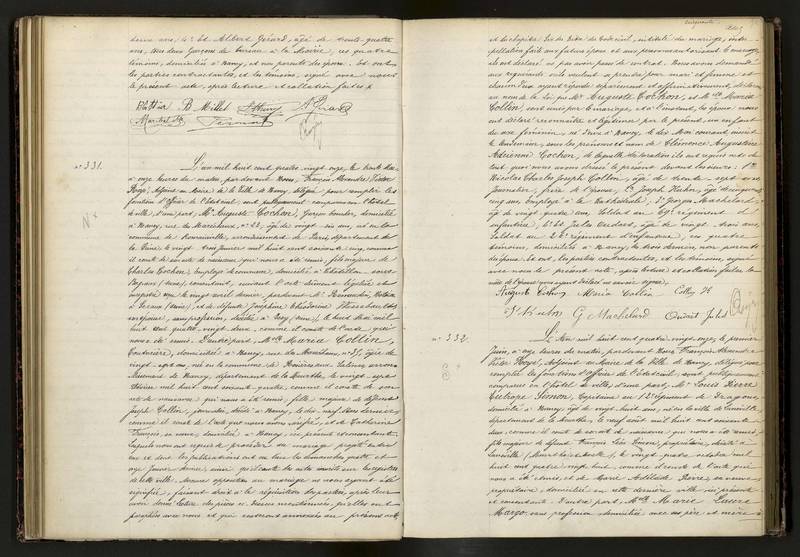 trente ans, 4° Ed. Albert Gérard, âgé de trente-quatre
ans, tous deux Garçons de bureau à la Mairie, ces quatre
témoins, domiciliés à Nancy, et non parents des époux. Et ont
les parties contractantes, et les témoins, signé avec nous
le présent acte, après lecture et collation faites
B Millet A Gérard
n° 331.
L'an mil huit cent quatre vingt onze, le trente Mai
à onze heures du matin, par devant Nous, François Alexandre Victor
Adjoint au Maire de la Ville de Nancy, délégué pour remplir les
fonctions d'Officier de l'État civil, sont publiquement comparus en l'hôtel
de ville, d'une part, Mr Auguste Cochon, Garçon boucher, domicilié
à Nancy, rue des Maréchaux, n° 22, âgé de vingt six ans, né en la
commune de Romainville, arrondissement de Paris, département de
la Seine, le vingt trois Janvier mil huit cent soixante cinq, comme
il conste de son acte de naissance qui nous a été remis, fils majeur de
Charles Cochon, Employé de commerce, domicilié à Châtillon sous
Bagneux (Seine), consentant, suivant l'acte dûment légalisé et
enregistré que le vingt avril dernier, pardevant Me Notaire
à (Seine), et de défunte Joséphine Théodorine
son épouse, sans profession, décédée à Issy (Seine), le huit Mai mil
huit cent quatre vingt deux, comme il conste de l'acte qui
nous a été remis. D'autre part, Melle Maria Collin,
Couturière, domiciliée à Nancy, rue du Montet, n° âgée de
vingt sept ans, née en la commune de Rosières aux Salines, arron-
dissement de Nancy, département de la Meurthe, le vingt sept
Février mil huit cent soixante quatre, comme il conste de son
acte de naissance qui nous a été remis, fille majeure de défunt
Joseph Collin, journalier, décédé à Nancy, le dix neuf Mars dernier,
comme il conste de l'acte que nous avons vérifié, et de Catherine
François, sa veuve, domiciliée à Nancy, ici présente et consentante.
Lesquels nous ont requis de procéder au mariage projeté entre
eux et dont les publications ont eu lieu les dimanches quatre et
onze Janvier dernier, ainsi qu'il conste des actes inscrits sur les registres
de cette ville. Aucune opposition au mariage ne nous ayant été
signifiée, faisant droit à la réquisition des parties, après leur
avoir donné lecture des pièces ci-dessus mentionnées, qu'elles ont
paraphées avec nous et qui resteront annexées au présent acte
cinquante
et du chapitre six du titre du Code civil, intitulé du mariage, inter-
pellation faite aux futurs époux et aux personnes autorisant le mariage,
ils ont déclaré ne pas avoir passé de contrat. Nous avons demandé
aux requérants s'ils veulent se prendre pour mari et femme et
chacun d'eux ayant répondu séparément et affirmativement, déclarons
au nom de la Loi que Mr Auguste Cochon, et Melle Maria
Collin, sont unis par le mariage, et à l'instant, les époux nous
ont déclaré reconnaître et légitimer par le présent, un enfant
du sexe féminin, né d'eux à Nancy, le dix Mai courant, inscrit
le lendemain, sous les prénoms et nom de Clémence Augustine
Adrienne Cochon, de laquelle déclaration ils ont requis acte. De
tout quoi nous avons dressé le présent devant les sieurs: 1°
Nicolas Charles Joseph Collin, âgé de trente-sept ans,
Journalier, frère de l'épouse, 2° Joseph Huhn, âgé de cinquante
cinq ans, employé à la Cathédrale, 3° Georges Machelard,
âgé de vingt quatre ans, Soldat au 69e régiment
d'infanterie, & 4° Jules Oudard, âgé de vingt trois ans,
Soldat au 26e régiment d'infanterie, ces quatre
témoins, domiciliés à Nancy, les trois derniers non parents
des époux. Et ont, les parties contractantes, et les témoins, signé
avec nous le présent acte, après lecture et collation faites la
mère de l'épouse nous ayant déclaré ne savoir signer.
Auguste Cochon Maria Collin Collin Ns
J. Huhn G Machelard Oudart Jules
n° 332.
L'An mil huit cent quatre vingt onze, le premier
Juin, à onze heures du matin, par devant Nous, François Alexandre
Victor Adjoint au Maire de la Ville de Nancy, délégué pour
remplir les fonctions d'Officier de l'État civil, sont publiquement
comparus en l'hôtel de ville, d'une part, Mr Louis Pierre
Eutrope Simon, Capitaine au 12e régiment de Dragons,
domicilié à Nancy, âgé de vingt huit ans, né en la ville de Lunéville,
département de la Meurthe, le neuf août mil huit cent soixante
deux, comme il conste de son acte de naissance qui nous a été remis,
fils majeur de défunt François Léon Simon, propriétaire, décédé à
Lunéville (Meurthe et Moselle), le vingt quatre octobre mil
huit cent quatre vingt huit, comme il conste de l'acte qui
nous a été remis, et de Marie Adélaïde sa veuve,
propriétaire, domiciliée en cette dernière ville, ici présente
et consentante. D'autre part, Melle Marie Laure
Margo, sans profession, domiciliée avec ses père et mère à